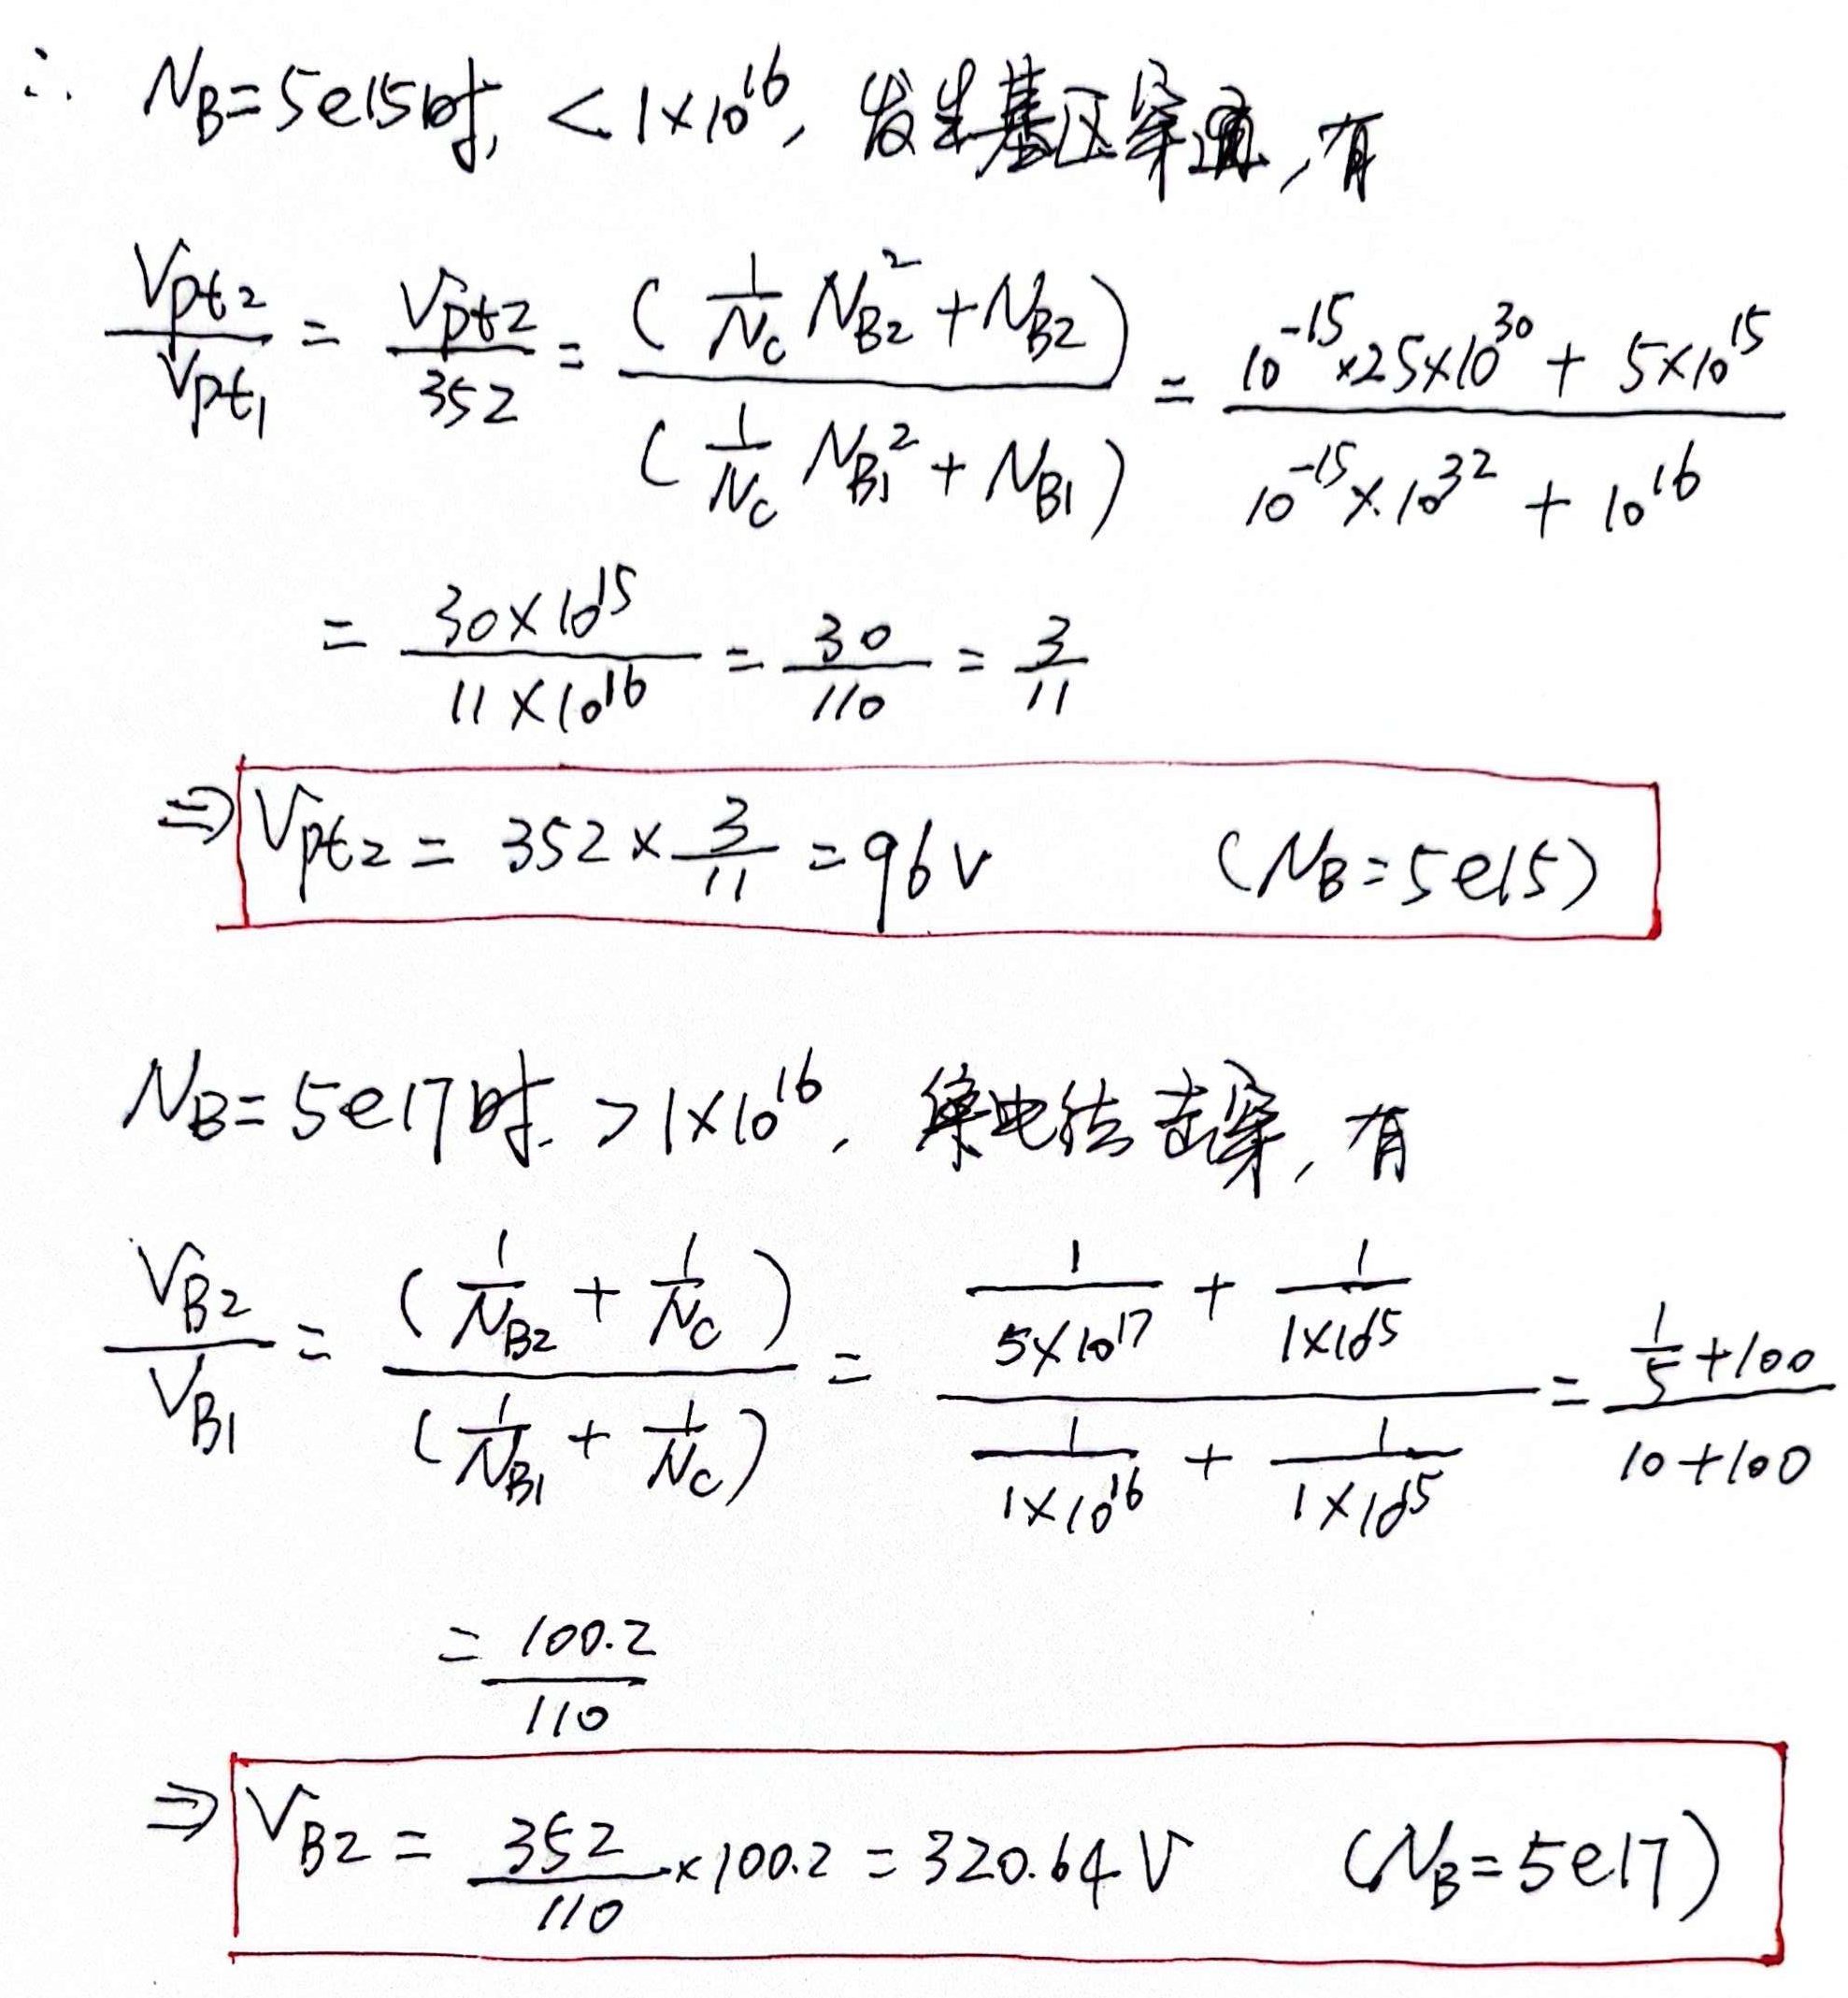 ∴ N_B=5e15时, <1×10^16, 发生基区穿通, 有
V_pt2/V_pt1 = V_pt2/352 = (1/N_C N_B2^2 + N_B2)/(1/N_C N_B1^2 + N_B1) = (10^-15×25×10^30 + 5×10^15)/(10^-15×10^32 + 10^16)
= 30×10^15/11×10^16 = 30/110 = 3/11
⇒ V_pt2 = 352×3/11 = 96V (N_B=5e15)
N_B=5e17时. >1×10^16, 电结击穿, 有
V_B2/V_B1 = (1/N_B2 + 1/N_C)/(1/N_B1 + 1/N_C) = (1/5×10^17 + 1/1×10^15)/(1/1×10^16 + 1/1×10^15) = (1/5+100)/(10+100)
= 100.2/110
⇒ V_B2 = 352/110×100.2 = 320.64V (N_B=5e17)